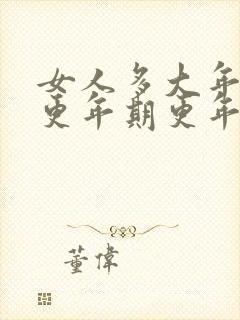 女人多大年
更年期更年
董偉